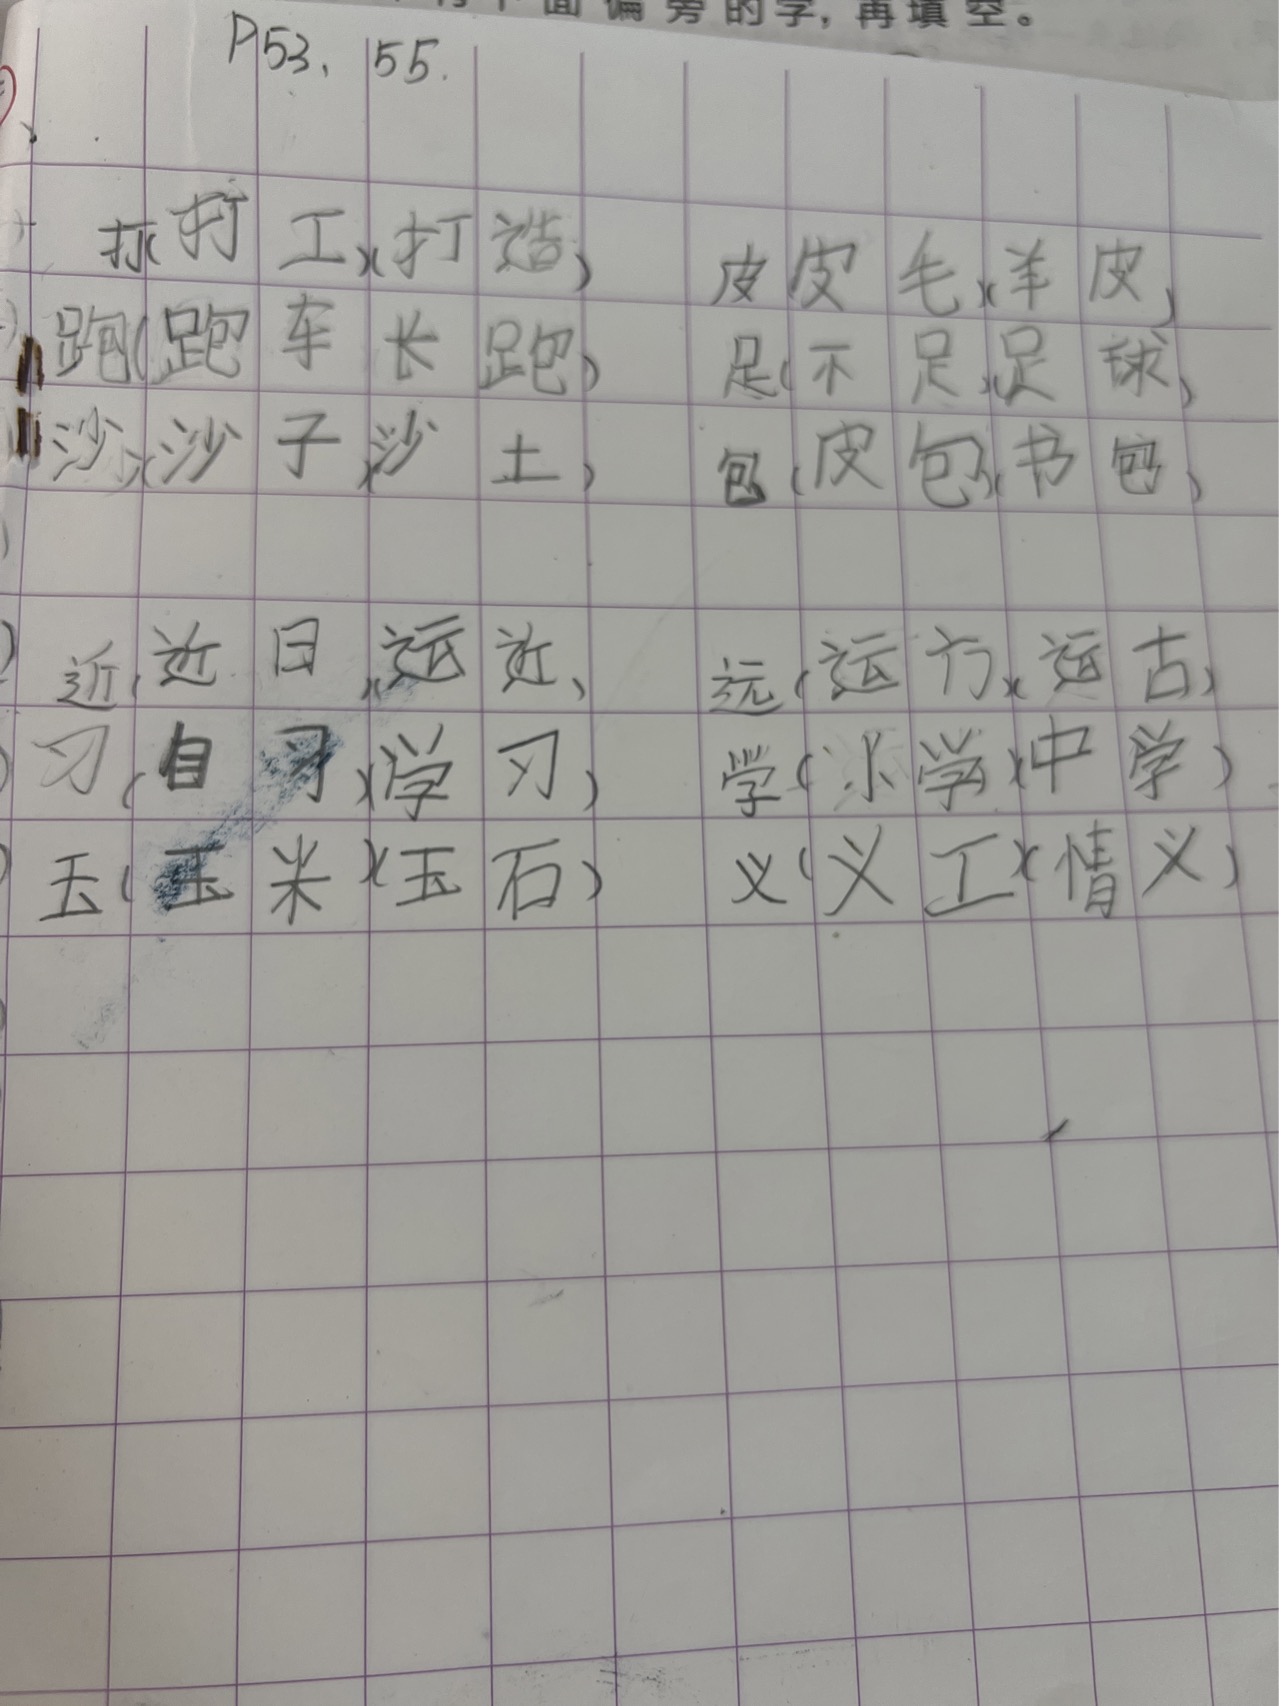 面偏旁的字，再填空。
P53、55.
打(打工)(打造) 皮(皮毛)(羊皮)
跑(跑车长跑) 足(不足)(足球)
沙(沙子)(沙土) 包(皮包)(书包)
近(近日)(远近) 远(远方)(远古)
习(自习)(学习) 学(小学)(中学)
玉(玉米)(玉石) 义(义工)(情义)